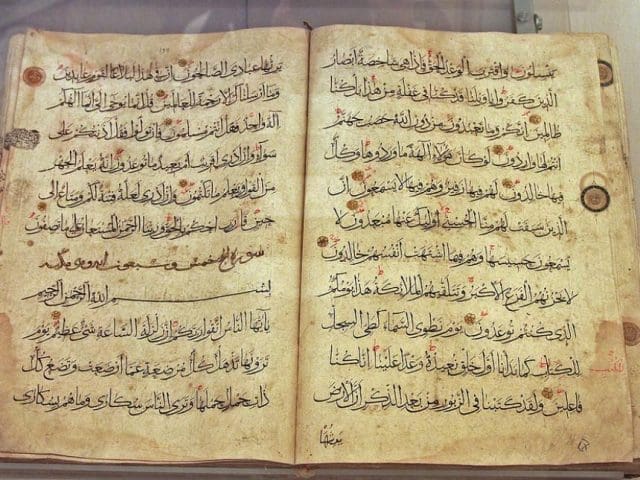 ينسلون واقترب الوعد الحق فاذا هي شاخصة ابصار
الذين كفروا يا ويلنا قد كنا في غفلة من هذا بل كنا
ظالمين انكم وما تعبدون من دون الله حصب جهنم
انتم لها واردون لو كان هؤلاء الهة ما وردوها وكل
فيها خالدون لهم فيها زفير وهم فيها لا يسمعون ان
الذين سبقت لهم منا الحسنى اولئك عنها مبعدون لا
يسمعون حسيسها وهم فيما اشتهت انفسهم خالدون
لا يحزنهم الفزع الاكبر وتتلقاهم الملائكة هذا يومكم
الذي كنتم توعدون يوم نطوي السماء كطي السجل
للكتاب كما بدانا اول خلق نعيده وعدا علينا انا كنا
فاعلين ولقد كتبنا في الزبور من بعد الذكر ان الارض
يرثها
يرثها عبادي الصالحون ان في هذا لبلاغا لقوم عابدين
وما ارسلناك الا رحمة للعالمين قل انما يوحى الي انما الهكم
اله واحد فهل انتم مسلمون فان تولوا فقل اذنتكم على
سواء وان ادري اقريب ام بعيد ما توعدون انه يعلم الجهر
من القول ويعلم ما تكتمون وان ادري لعله فتنة لكم ومتاع الى
حين قال رب احكم بالحق وربنا الرحمن المستعان على ما تصفون
سورة الحج خمس وسبعون اية
بسم الله الرحمن الرحيم
يا ايها الناس اتقوا ربكم ان زلزلة الساعة شيء عظيم يوم
ترونها تذهل كل مرضعة عما ارضعت وتضع كل
ذات حمل حملها وترى الناس سكارى وما هم بسكارى